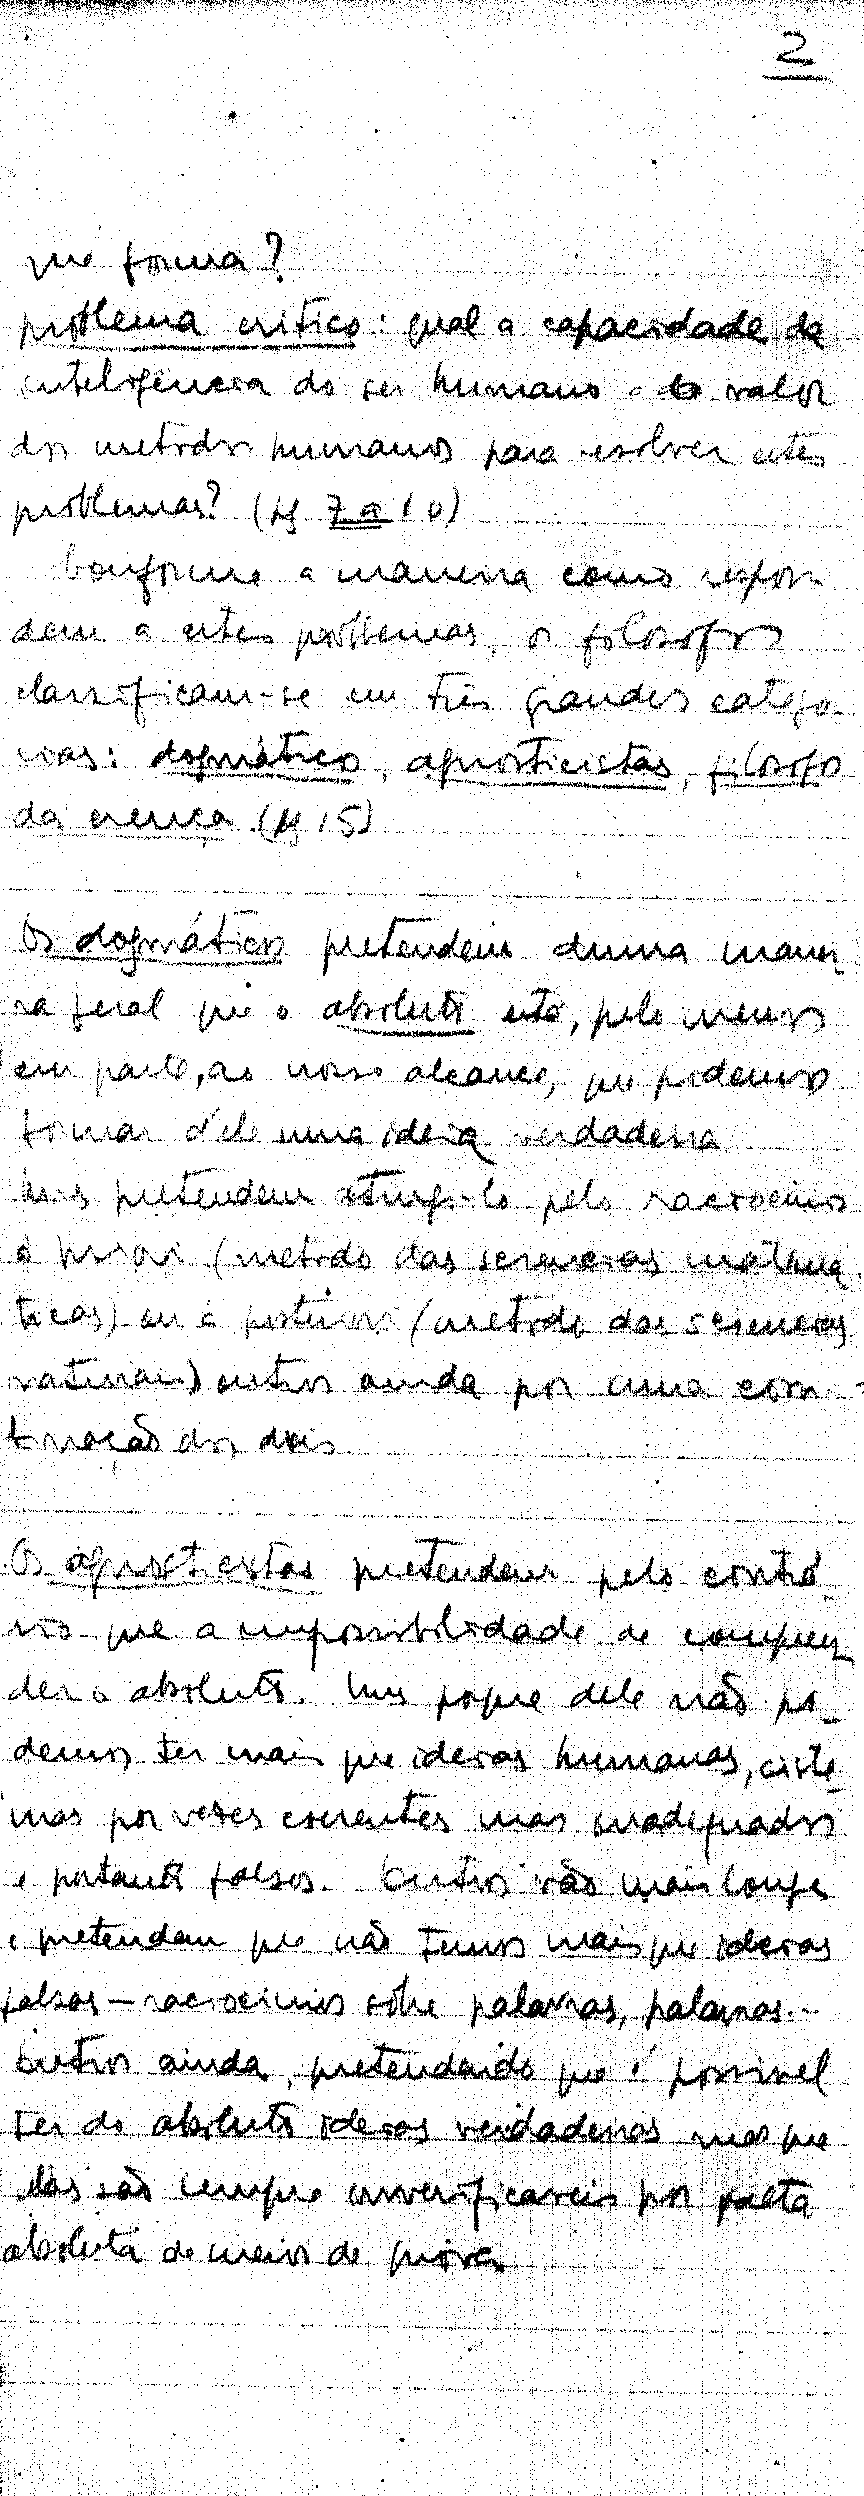 2
que forma?
problema critico: qual a capacidade da
inteligência do ser humano e o valor
dos metodos humanos para resolver estes
problemas? (pg 7 a 10)
Conforme a maneira como respon-
dem a estes problemas, os filosofos
classificam-se em três grandes catego-
rias: dogmáticos, agnosticistas, filosofos
da crença (pg 15)
Os dogmáticos pretendem duma manei-
ra geral que o absoluto está, pelo menos
em parte, ao nosso alcance, que podemos
formar d'ele uma ideia verdadeira
Uns pretendem atingi-lo pelo raciocinio
á priori (metodo das sciencias matemá-
ticas) ou á posteriori (metodo das sciencias
naturais) outros ainda por uma com-
binação dos dois
Os agnosticistas pretendem pelo contrá-
rio que a impossibilidade de compreen-
der o absoluto. Uns porque dele não po-
demos ter mais que ideias humanas, siste-
mas por vezes coerentes mas inadequados
e portanto falsos. Outros vão mais longe
e pretendem que não temos mais que ideias
falsas — raciocinios sobre palavras, palavras. -
Outros ainda, pretendendo que é possivel
ter do absoluto ideias verdadeiras mas que
elas são sempre inverificaveis por falta
absoluta de meios de prova